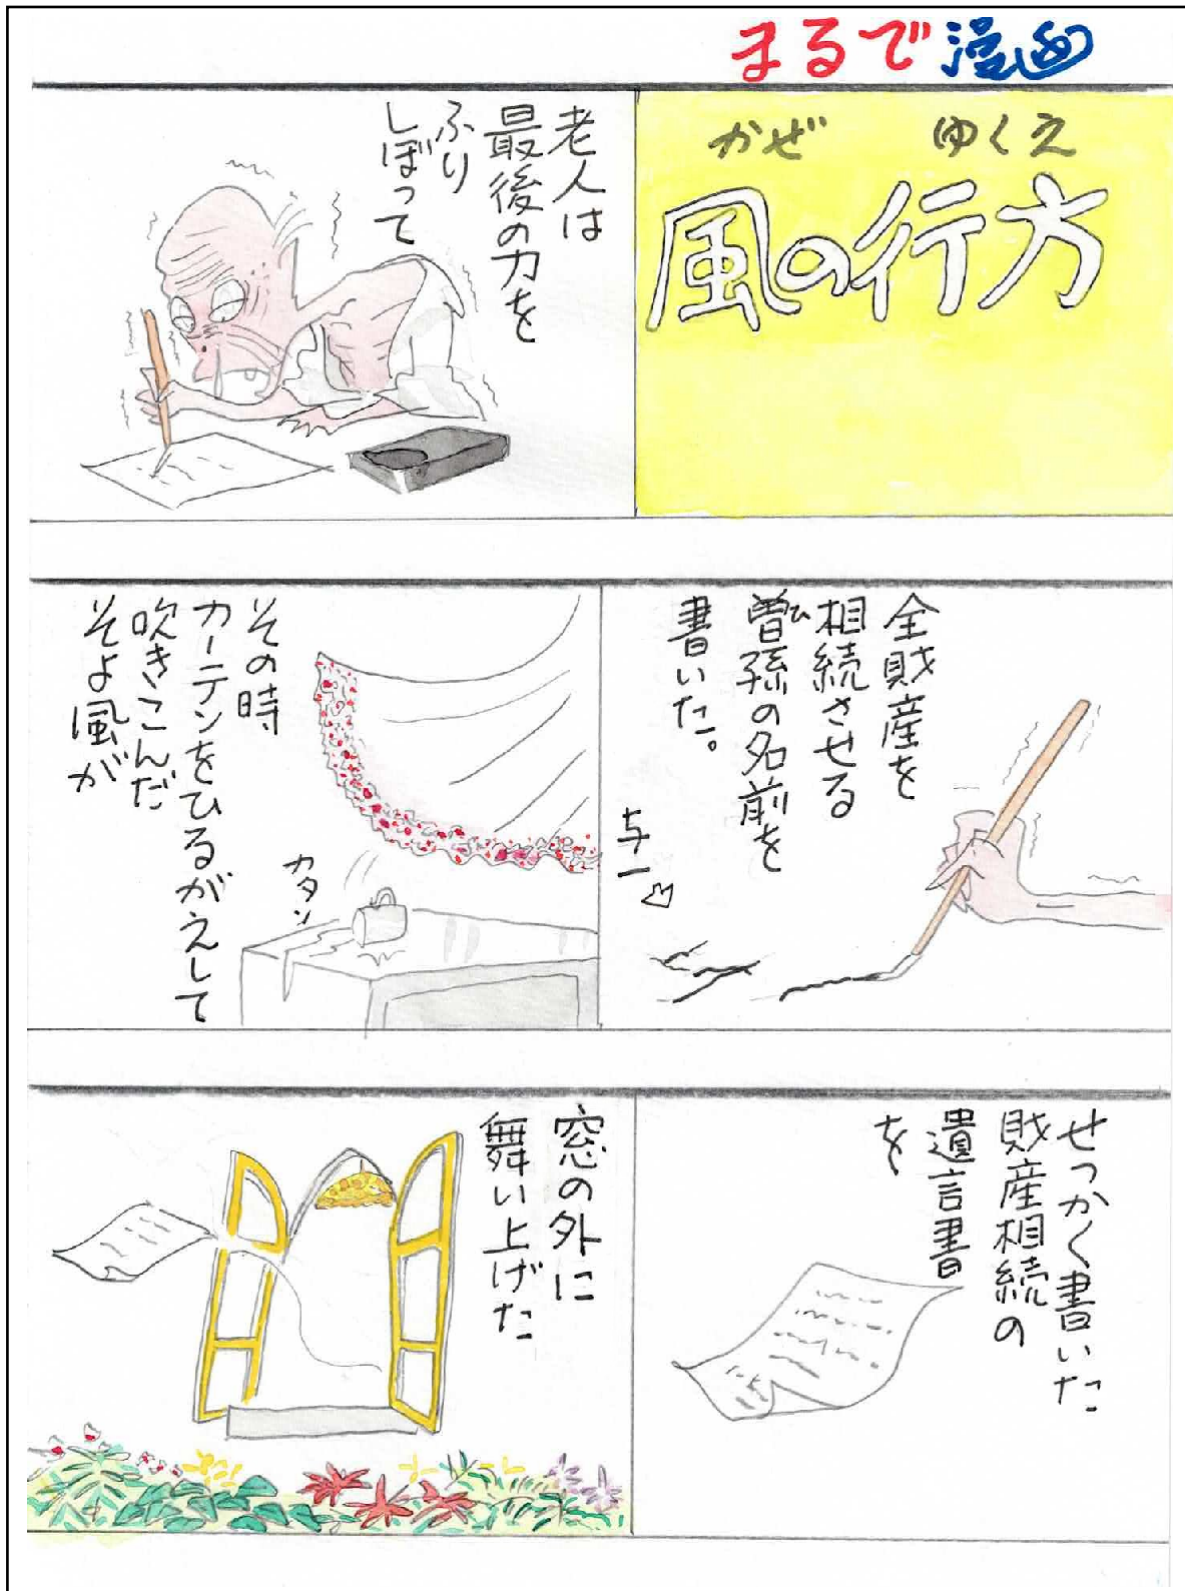 まるで漫画
かぜ ゆくえ
風の行方
老人は
最後の力を
ふり
しぼって
全財産を
相続させる
曽孫の名前を
ひ
書いた。
与一
その時
カーテンをひるがえして
吹きこんだ
そよ風が
カタン
せっかく書いた
財産相続の
遺言書
を
窓の外に
舞い上げた